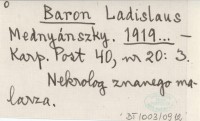 Baron Ladislaus
Mednyánszky. 1919... –
Karp. Post 40, nr 20: 3.
Nekrolog znanego ma-
larza.